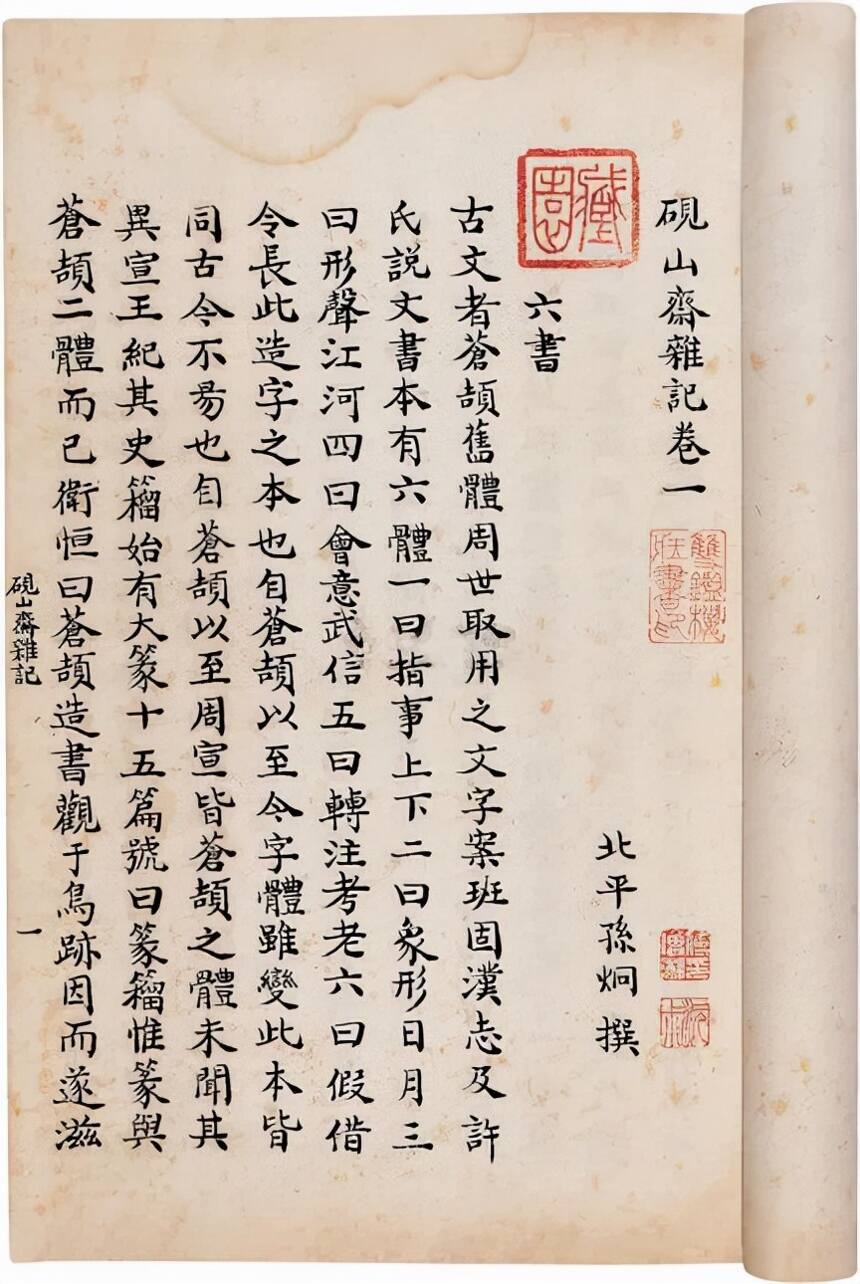 硯山齋雜記卷一
雙鑑樓
藏書印
沅叔
北平孫炯撰
藏園
六書
古文者蒼頡舊體周世取用之文字案班固漢志及許
氏説文書本有六體一曰指事上下二曰象形日月三
曰形聲江河四曰會意武信五曰轉注考老六曰假借
令長此造字之本也自蒼頡以至今字體雖變此本皆
同古今不易也自蒼頡以至周宣皆蒼頡之體未聞其
異宣王紀其史籀始有大篆十五篇號曰篆籀惟篆與
蒼頡二體而已衛恒曰蒼頡造書觀于鳥跡因而遂滋
硯山齋雜記
一